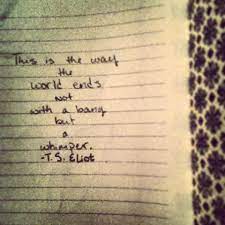 This is the way
the
world ends
not
with a bang
but
a
whimper.
-T.S. Eliot